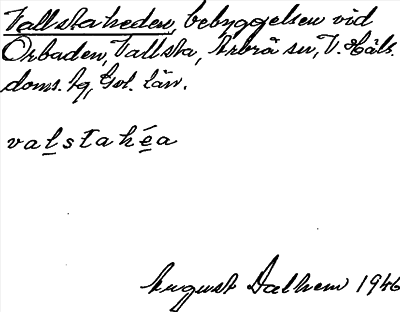 Vallstaheden, bebyggelsen vid
Orbaden, Vallsta, Arbrå sn, V. Häls.
doms. tg, Gvl. län.
valstahéa
August Dalhem 1946